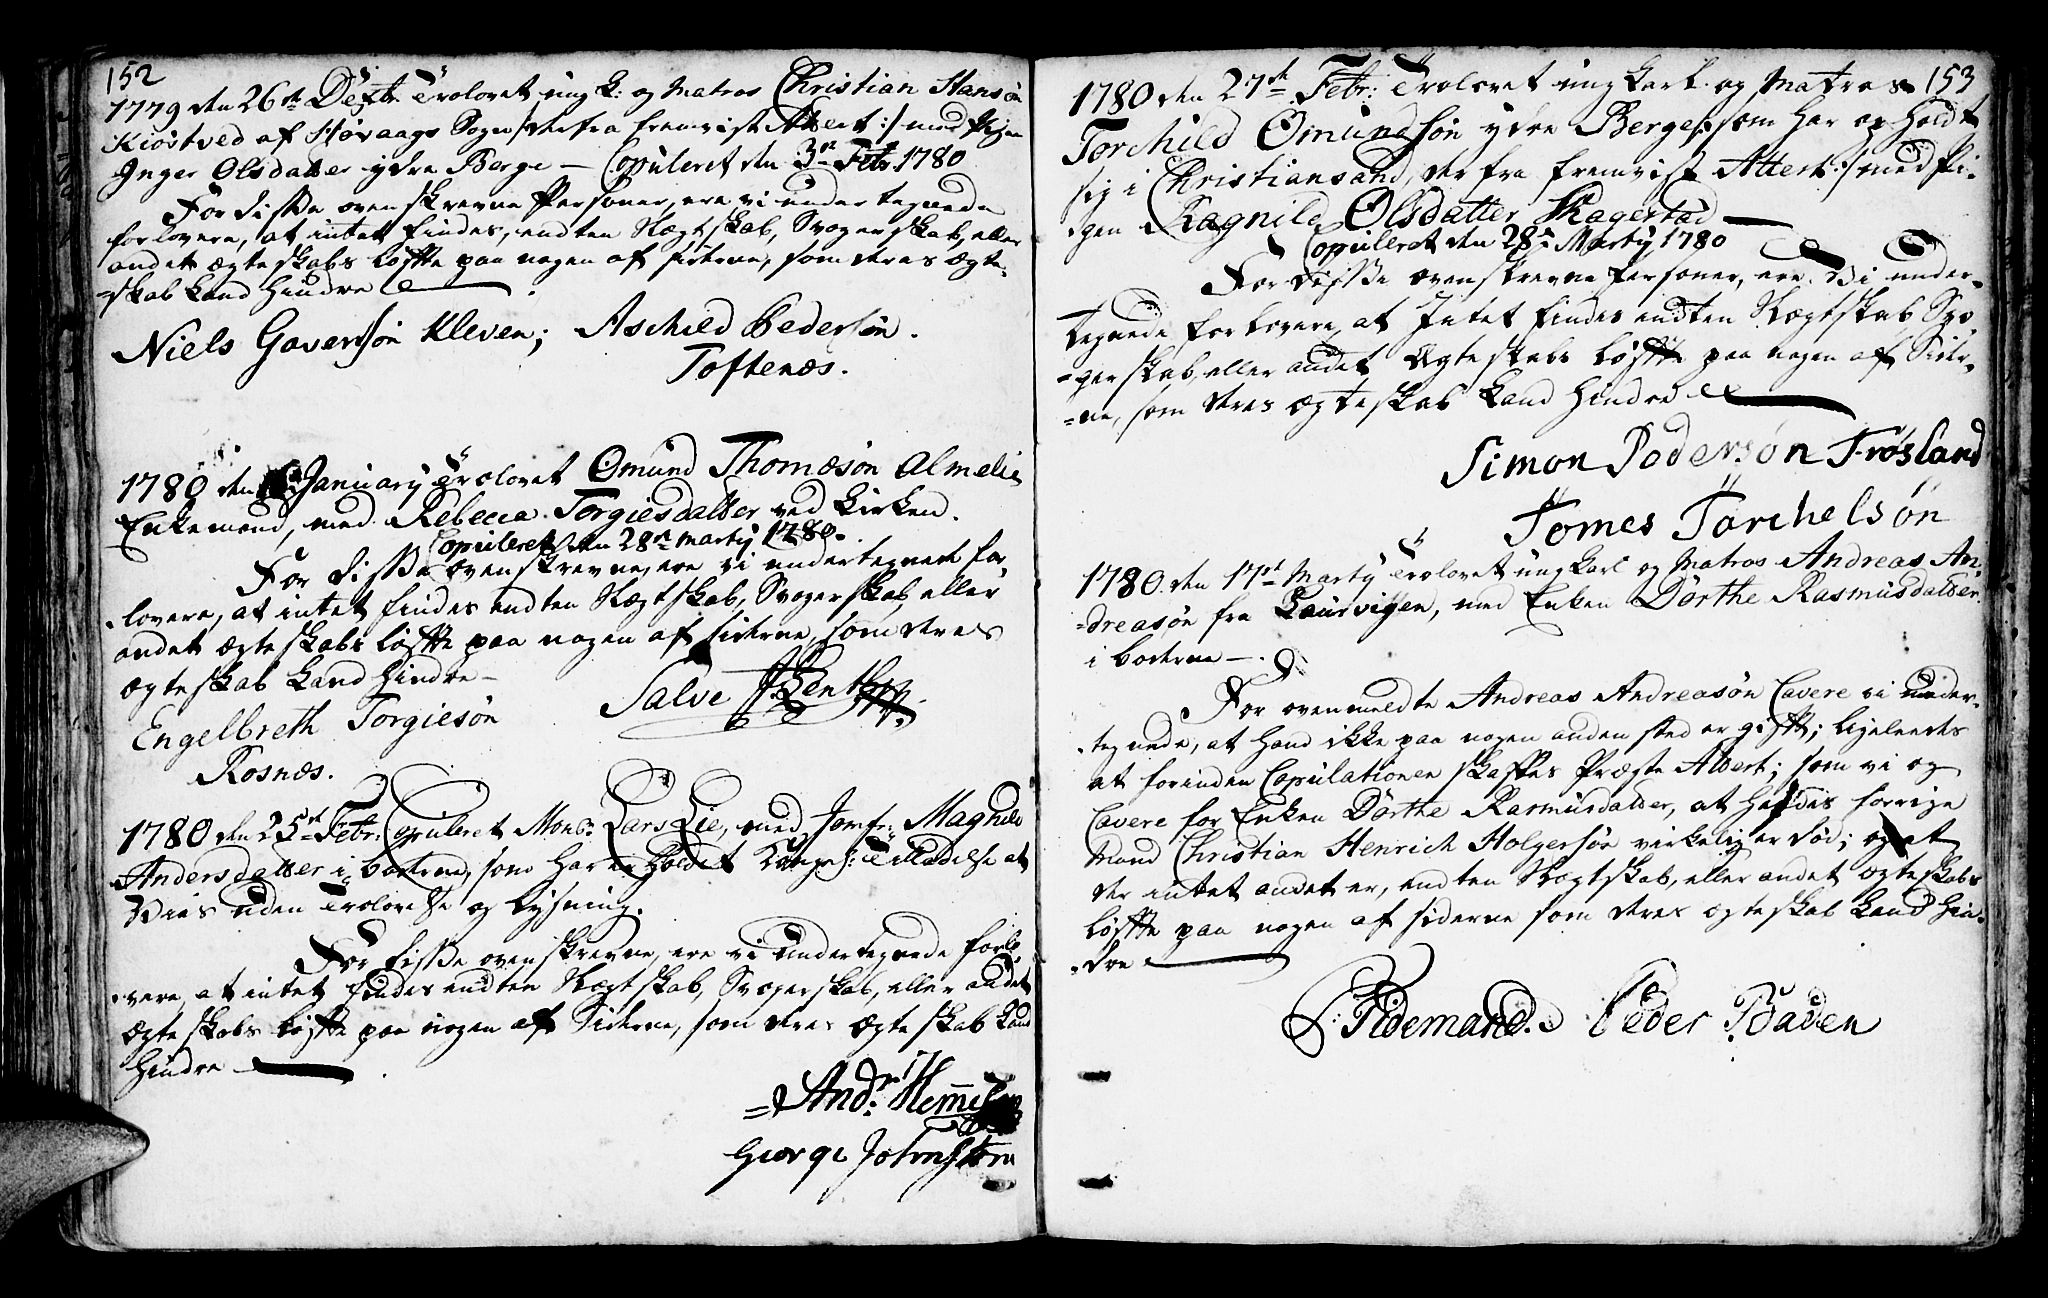 152
1779 den 26de Dectr. Trolovet ungk: og Matros Christian Hansøn
Kiøstved af Høvaags Sogn /: derfra fremvist Attest :/ med Pigen
Inger Olsdatter ydre Berge — Copuleret den 3die Febr. 1780
For disse ovenskrevne Personer, ere vi undertegnede
forlovere, at intet findes, endten Slægtskab, Svogerskab, eller
andet ægteskabs Løfte paa nogen af siderne, som deres ægte-
-skab kand hindre
Niels Goversøn Kleven; Aschild Pedersøn.
Toftenæs.
1780 den January Trolovet Omund Thomæsøn Almelie
Enkemand, med Rebecca Torgiesdatter ved Kirken.
Copuleret den 28de Martij 1780.
For disse ovenskrevne, ere vi undertegnede for-
-lovere, at intet findes endten Slægtskab, Svogerskab, eller
andet ægteskabs Løfte paa nogen af siderne, som deres
ægteskab kand hindre —
Engelbreth Torgiesøn Salve Bentsen
Rosnæs.
1780 den 25de Febr. Copuleret Monsr. Lars Lie, med Jomfr: Magnild
Andersdatter i boderne, som har erholdet Konges: Tilladelse at
Vies uden Trolovelse og Lysning.
For disse ovenskrevne, ere vi undertegnede forlo-
-vere, at intet findes endten Slægtskab, Svogerskab, eller andet
ægteskabs Løfte paa nogen af Siderne, som deres ægteskab kand
hindre
Andr.
George Johnston
153
1780 den 27de Febr: Trolovet ungkarl og Matros
Torchild Omundsøn ydre Berge /: som har opholdt
sig i Christiansand, derfra fremvist Attest :/ med Pi-
-gen Ragnild Olsdatter Skagestad —
Copuleret den 28de Martij 1780
For disse ovenskrevne Personer, ere Vi under-
tegnede forlovere, at Intet findes endten Slægtskab Svo-
-gerskab, eller andet Ægteskabs Løfte paa nogen af Sider-
-ne, som deres ægteskab kand hindre
Simon Podersøn Frøsland
Tomes Torchelsøn
1780 den 17de Martij Trolovet ungkarl og Matros Andreas An-
-dreasøn fra Laurvigen, med Enken Dorthe Rasmusdatter
i boderne —.
For ovenmeldte Andreas Andreasøn Cavere vi under-
-tegnede, at hand ikke paa nogen anden sted er gift; ligeleedes
at forinden Copulationen skaffes Præste Attest; som vi og
Cavere for Enken Dorthe Rasmusdatter, at hendes forrige
Mand Christian Henrich Holgersøn virkelig er død; og at
der intet andet er, endten Slægtskab, eller andet ægteskabs
løfte paa nogen af siderne som deres ægteskab kand hin-
-dre
Tidemand. Peder Baden